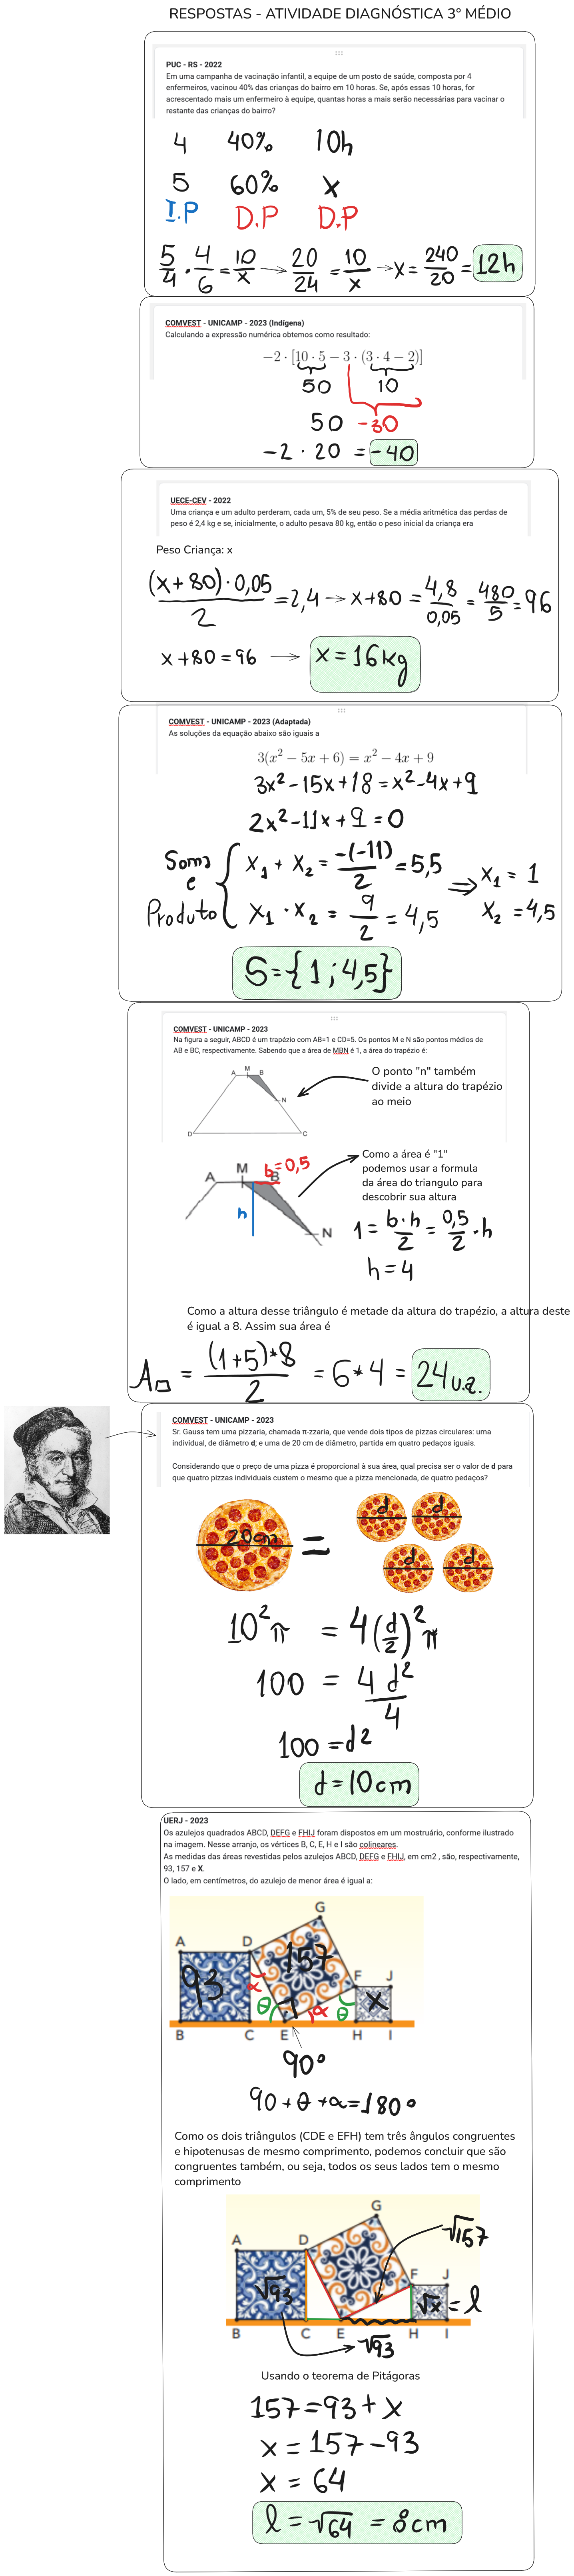 RESPOSTAS - ATIVIDADE DIAGNÓSTICA 3° MÉDIO
PUC - RS - 2022
Em uma campanha de vacinação infantil, a equipe de um posto de saúde, composta por 4
enfermeiros, vacinou 40% das crianças do bairro em 10 horas. Se, após essas 10 horas, for
acrescentado mais um enfermeiro à equipe, quantas horas a mais serão necessárias para vacinar o
restante das crianças do bairro?
4 40% 10h
5 60% x
I.P D.P D.P
5/4 · 4/6 = 10/x → 20/24 = 10/x → x = 240/20 = 12h
COMVEST - UNICAMP - 2023 (Indígena)
Calculando a expressão numérica obtemos como resultado:
−2 · [10 · 5 − 3 · (3 · 4 − 2)]
50 10
50 -30
-2 · 20 = -40
UECE-CEV - 2022
Uma criança e um adulto perderam, cada um, 5% de seu peso. Se a média aritmética das perdas de
peso é 2,4 kg e se, inicialmente, o adulto pesava 80 kg, então o peso inicial da criança era
Peso Criança: x
(x+80)·0,05/2 = 2,4 → x+80 = 4,8/0,05 = 480/5 = 96
x+80=96 → x=16kg
COMVEST - UNICAMP - 2023 (Adaptada)
As soluções da equação abaixo são iguais a
3(x² − 5x + 6) = x² − 4x + 9
3x²-15x+18=x²-4x+9
2x²-11x+9=0
Soma e Produto
x₁ + x₂ = -(-11)/2 = 5,5 ⇒ x₁ = 1
x₁ · x₂ = 9/2 = 4,5 x₂ = 4,5
S={1;4,5}
COMVEST - UNICAMP - 2023
Na figura a seguir, ABCD é um trapézio com AB=1 e CD=5. Os pontos M e N são pontos médios de
AB e BC, respectivamente. Sabendo que a área de MBN é 1, a área do trapézio é:
A M B
N
D C
O ponto "n" também
divide a altura do trapézio
ao meio
A M B
b=0,5
h
N
Como a área é "1"
podemos usar a formula
da área do triangulo para
descobrir sua altura
1 = b·h/2 = 0,5/2 · h
h=4
Como a altura desse triângulo é metade da altura do trapézio, a altura deste
é igual a 8. Assim sua área é
A□ = (1+5)*8/2 = 6*4 = 24u.a.
COMVEST - UNICAMP - 2023
Sr. Gauss tem uma pizzaria, chamada π-zzaria, que vende dois tipos de pizzas circulares: uma
individual, de diâmetro d; e uma de 20 cm de diâmetro, partida em quatro pedaços iguais.
Considerando que o preço de uma pizza é proporcional à sua área, qual precisa ser o valor de d para
que quatro pizzas individuais custem o mesmo que a pizza mencionada, de quatro pedaços?
20cm = d d
d d
10²π = 4(d/2)²π
100 = 4 d²/4
100=d²
d=10cm
UERJ - 2023
Os azulejos quadrados ABCD, DEFG e FHIJ foram dispostos em um mostruário, conforme ilustrado
na imagem. Nesse arranjo, os vértices B, C, E, H e I são colineares.
As medidas das áreas revestidas pelos azulejos ABCD, DEFG e FHIJ, em cm2 , são, respectivamente,
93, 157 e X.
O lado, em centímetros, do azulejo de menor área é igual a:
G
A D
93 157
F J
α θ α θ x
B C E H I
90°
90 + θ + α = 180°
Como os dois triângulos (CDE e EFH) tem três ângulos congruentes
e hipotenusas de mesmo comprimento, podemos concluir que são
congruentes também, ou seja, todos os seus lados tem o mesmo
comprimento
G
√157
A D
F J
√93 √x = l
B C E H I
√93
Usando o teorema de Pitágoras
157=93+x
x = 157-93
x = 64
l = √64 = 8cm